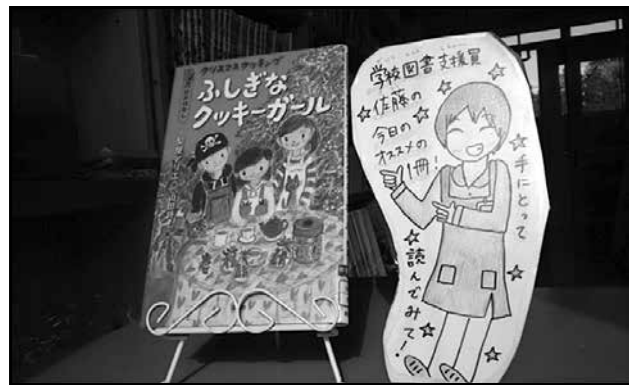 クリスマスクッキング
ふしぎな
クッキーガール
学校図書支援員
佐藤の
今日の
オススメの
1冊!
手にとって
読んでみて!